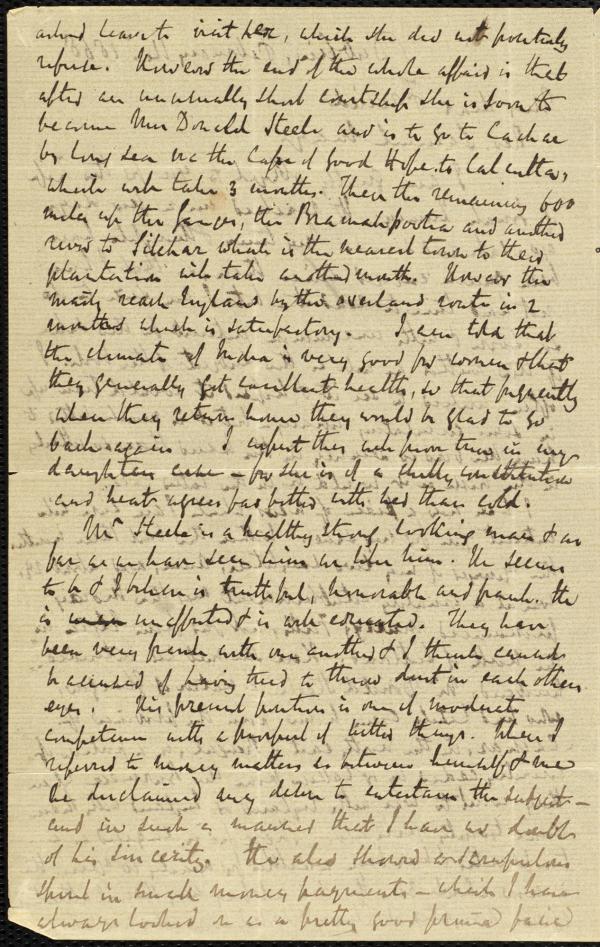 asked leave to visit her, which she did not positively
refuse. However the end of the whole affair is that
after an unusually short courtship she is soon to
become Mrs Donald Steele and is to go to Cachar
by long sea via the Cape of Good Hope to Calcutta,
which will take 3 months. Then the remaining 600
miles up the Ganges, the Bramahpootra and another
river to Silchar which is the nearest town to their
plantation will take another month. However the
mails reach England by the overland route in 2
months which is satisfactory. I am told that
the climate of India is very good for women & that
they generally get excellent health, so that frequently
when they return home they would be glad to go
back again I expect this will prove true in my
daughters case – for she is of a chilly constitution
and heat agrees far better with her than cold.
Mr Steele is a healthy strong looking man & as
far as we have seen him we like him. He seems
to be & I believe is truthful, honorable and frank. He
is unaffected & is well educated. They have
been very frank with one another & I think cannot
be accused of having tried to throw dust in each others
eyes. His present position is one of moderate
competence with a prospect of better things. When I
referred to money matters as between himself & me
he disclaimed any desire to entertain the subject –
and in such a manner that I have no doubt
of his sincerity. He also showed a scrupulous
spirit in small money payments – which I have
always looked on as a pretty good prima facie